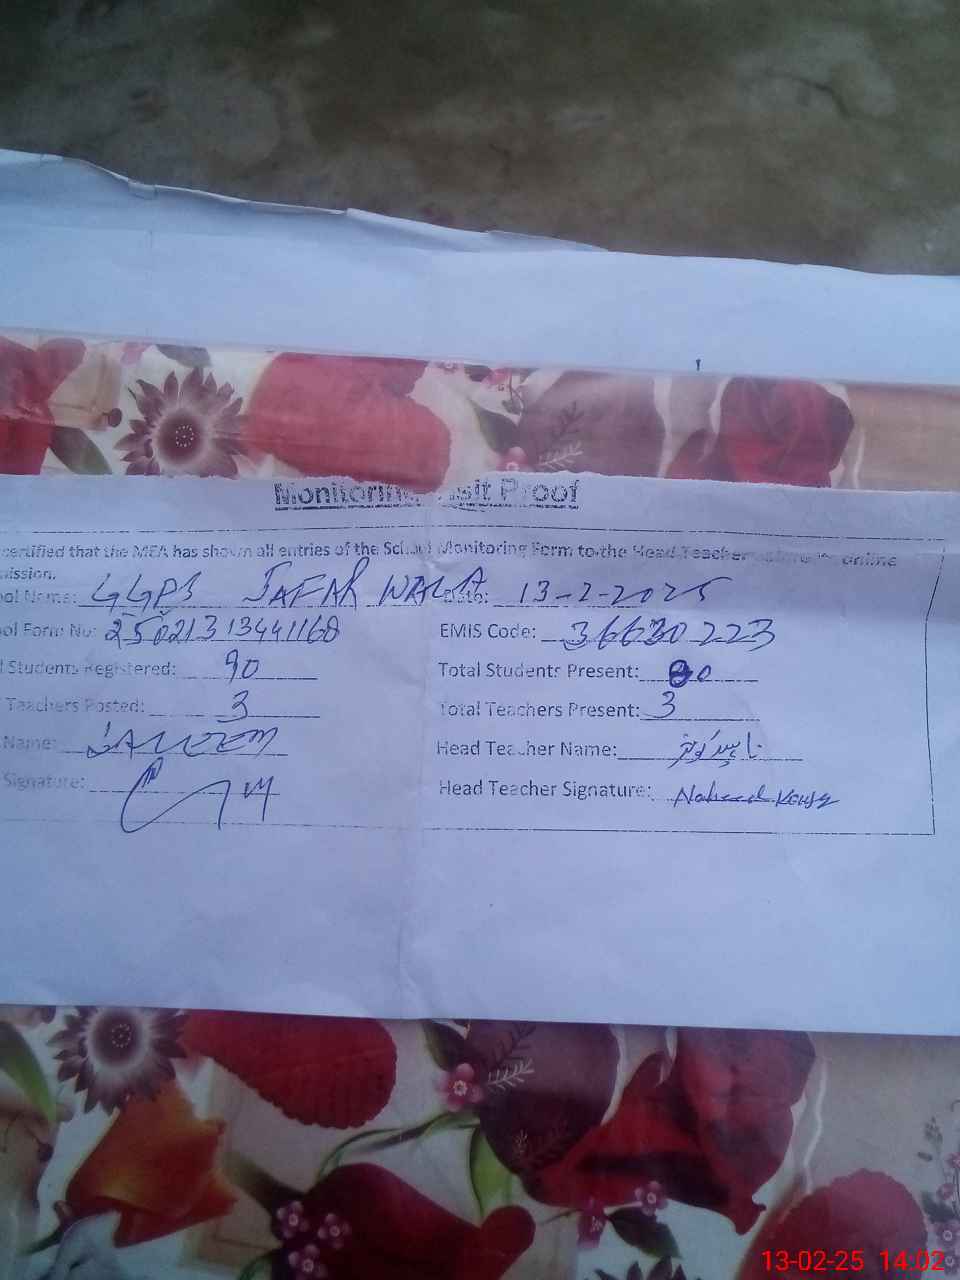 Monitoring Visit Proof
certified that the MEA has shown all entries of the School Monitoring Form to the Head Teacher online
mission.
ool Name: GGPS JAFAR WALA Date: 13-2-2025
ool Form No: 25021313441168 EMIS Code: 36630223
l Students Registered: 90 Total Students Present: 80
Teachers Posted: 3 Total Teachers Present: 3
Name: SALEEM Head Teacher Name:
Signature: Head Teacher Signature: Naheed Kausar
13-02-25 14:02